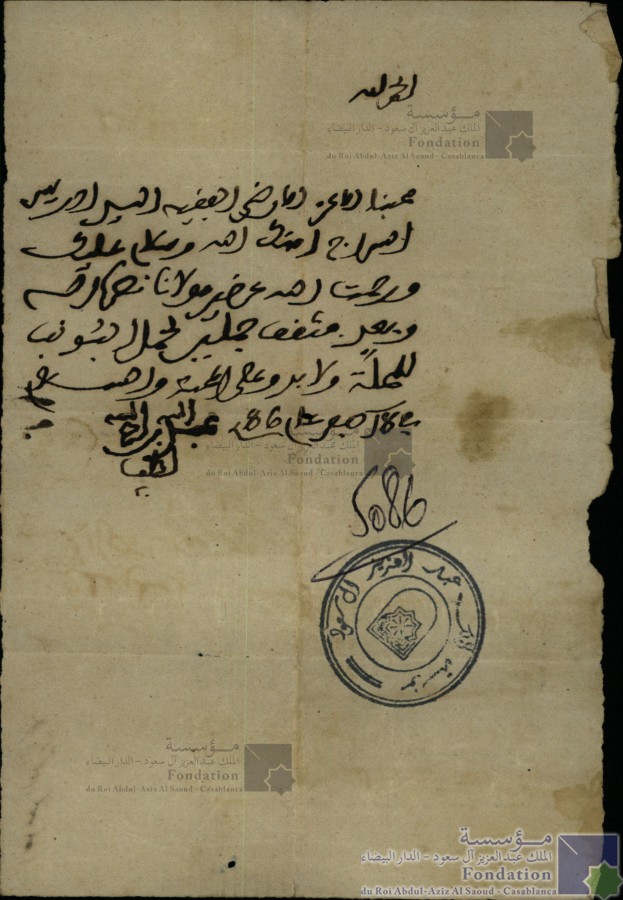 الحمد لله
مؤسسة
الملك عبد العزيز آل سعود - الدار البيضاء
Fondation
du Roi Abdul-Aziz Al Saoud - Casablanca
محبنا الاعز الارضى الفقيه السيد ادريس
السراج امنك الله وسلام عليك
ورحمت الله عن خير مولانا نصره الله
وبعد
جملين لحمل
للمحلة ولا بد وعلى المحبة والسلام
في 18 صفر عام 86
عبد الله
مؤسسة
الملك عبد العزيز آل سعود - الدار البيضاء
Fondation
du Roi Abdul-Aziz Al Saoud - Casablanca
5086
مؤسسة الملك عبد العزيز آل سعود
مؤسسة
الملك عبد العزيز آل سعود - الدار البيضاء
Fondation
du Roi Abdul-Aziz Al Saoud - Casablanca
مؤسسة
الملك عبد العزيز آل سعود - الدار البيضاء
Fondation
du Roi Abdul-Aziz Al Saoud - Casablanca